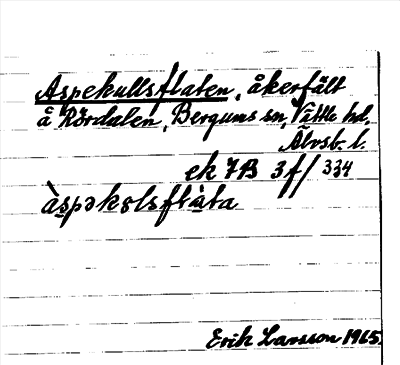 Aspekullsflaten, åkerfält
å Rördalen, Bergums sn, Vättle hd,
Älvsb. l.
ek 7B 3f/ 334
àspəkɷlsflàta
Erik Larsson 1965.